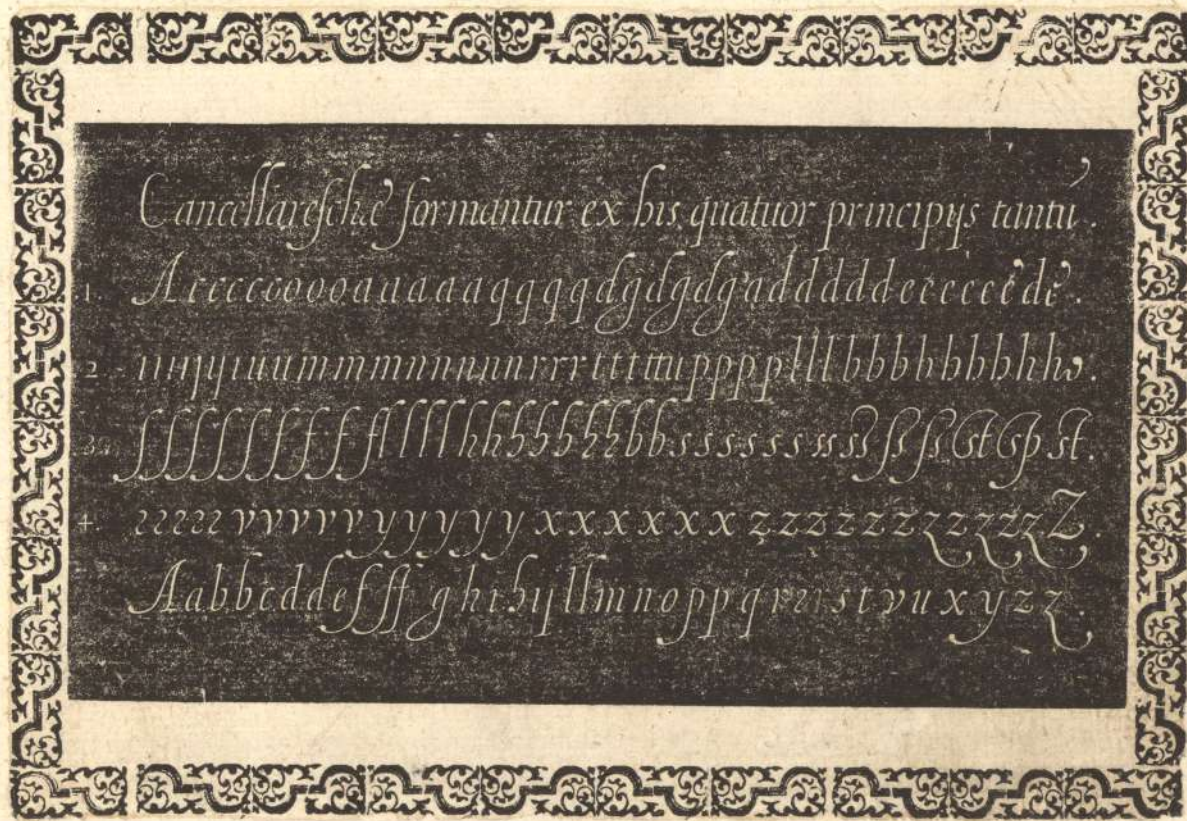 Cancellaresche formantur ex his quatuor principijs tantũ.
1. A c c c c c o o o o a a a a a a q q q q q d g d g d g a d d d d d d e e e e e e d e.
2. ı ı ı ȷ ȷ y ı u u m m m m n n n n n r r r t t t t t u p p p p p l l l l b b b b h b b h h ɔ.
3. ſ ſ ſ ſ ſ ſ ſ f f f fl l l l h h h h h h h b b s s s s s s ss ss ſſ ſs st sp st.
4. ꝛ ꝛ ꝛ ꝛ ꝛ v v v v v y y y y y y x x x x x x z z z z z z z z z z z Z.
A a b b c d d e f ſ ſt g h i h ij ll m n o p p q r ꝛ ı s t v u x y z z.